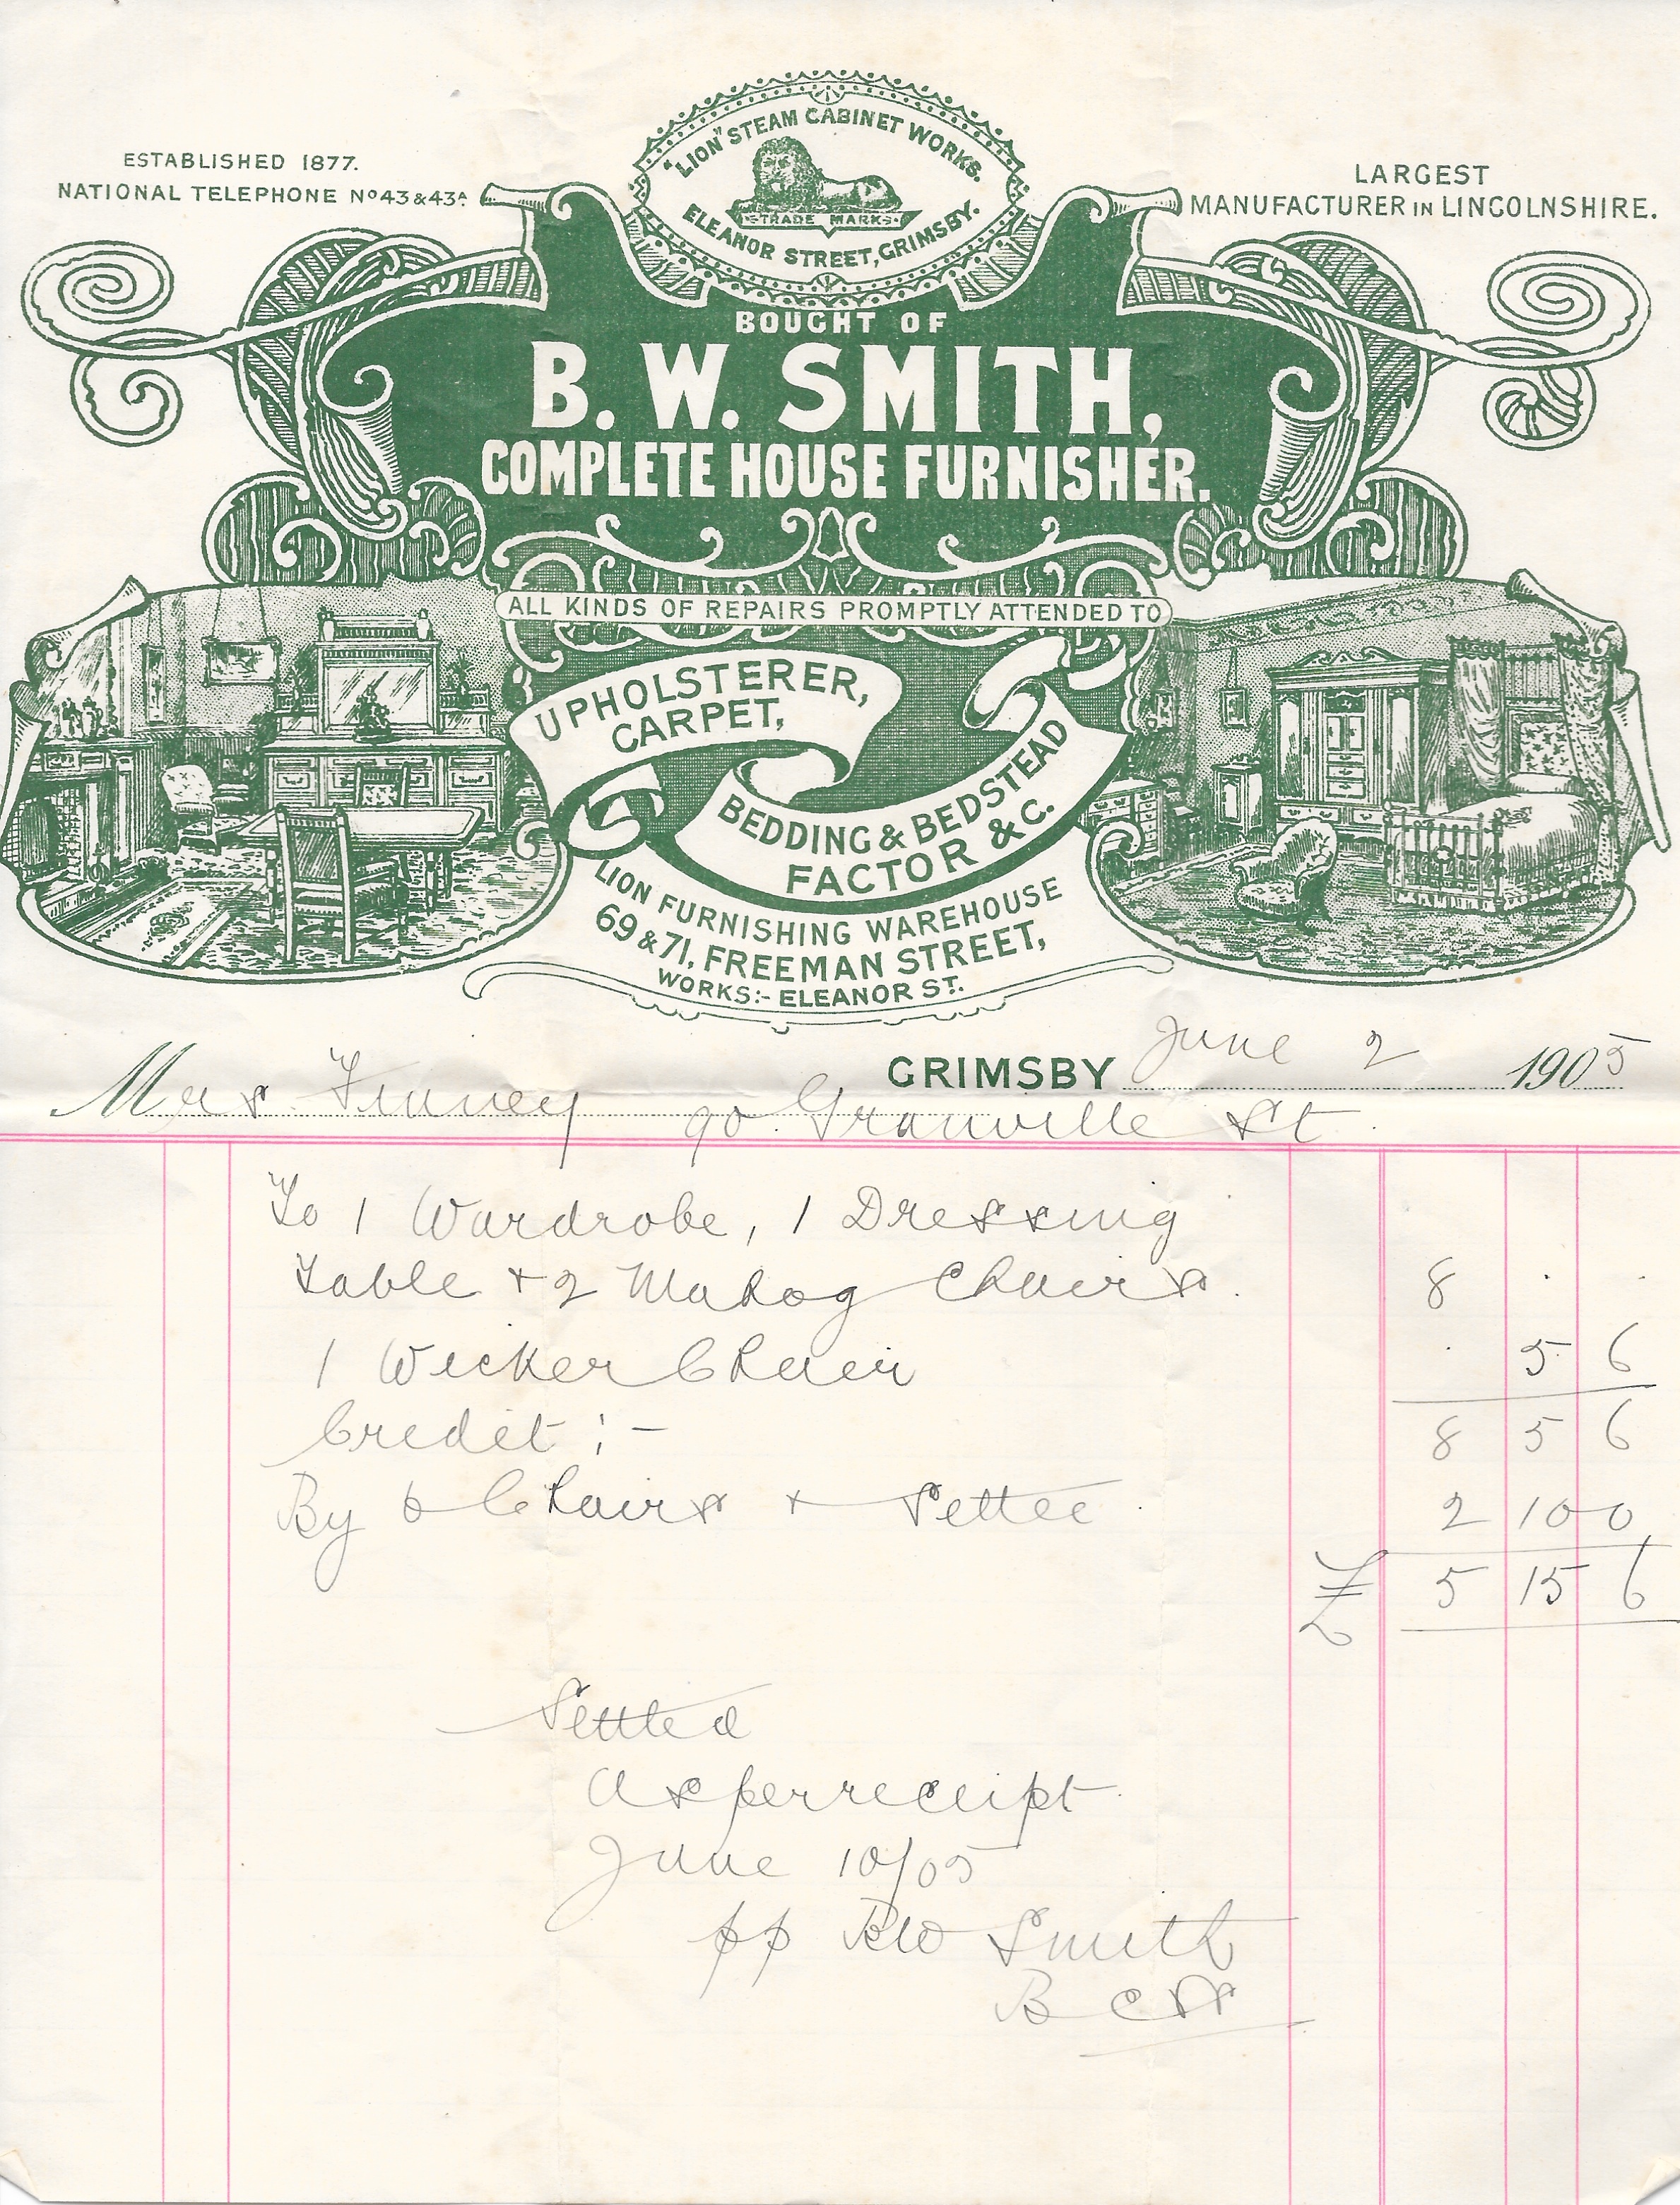 ESTABLISHED 1877.
NATIONAL TELEPHONE Nº 43 & 43A.
"LION" STEAM CABINET WORKS.
TRADE MARKS
ELEANOR STREET, GRIMSBY.
LARGEST
MANUFACTURER IN LINCOLNSHIRE.
BOUGHT OF
B. W. SMITH,
COMPLETE HOUSE FURNISHER.
ALL KINDS OF REPAIRS PROMPTLY ATTENDED TO
UPHOLSTERER,
CARPET,
BEDDING & BEDSTEAD
FACTOR & C.
LION FURNISHING WAREHOUSE
69 & 71, FREEMAN STREET,
WORKS:- ELEANOR ST.
GRIMSBY June 2 1905
Mrs Finney 90 Granville St
To 1 Wardrobe, 1 Dressing
Table + 2 Mahog Chairs. 8 . .
1 Wicker Chair . 5 6
Credit :- 8 5 6
By 6 Chairs + Settee 2 10 0
£ 5 15 6
Settled
as per receipt
June 10/05
pp BW Smith